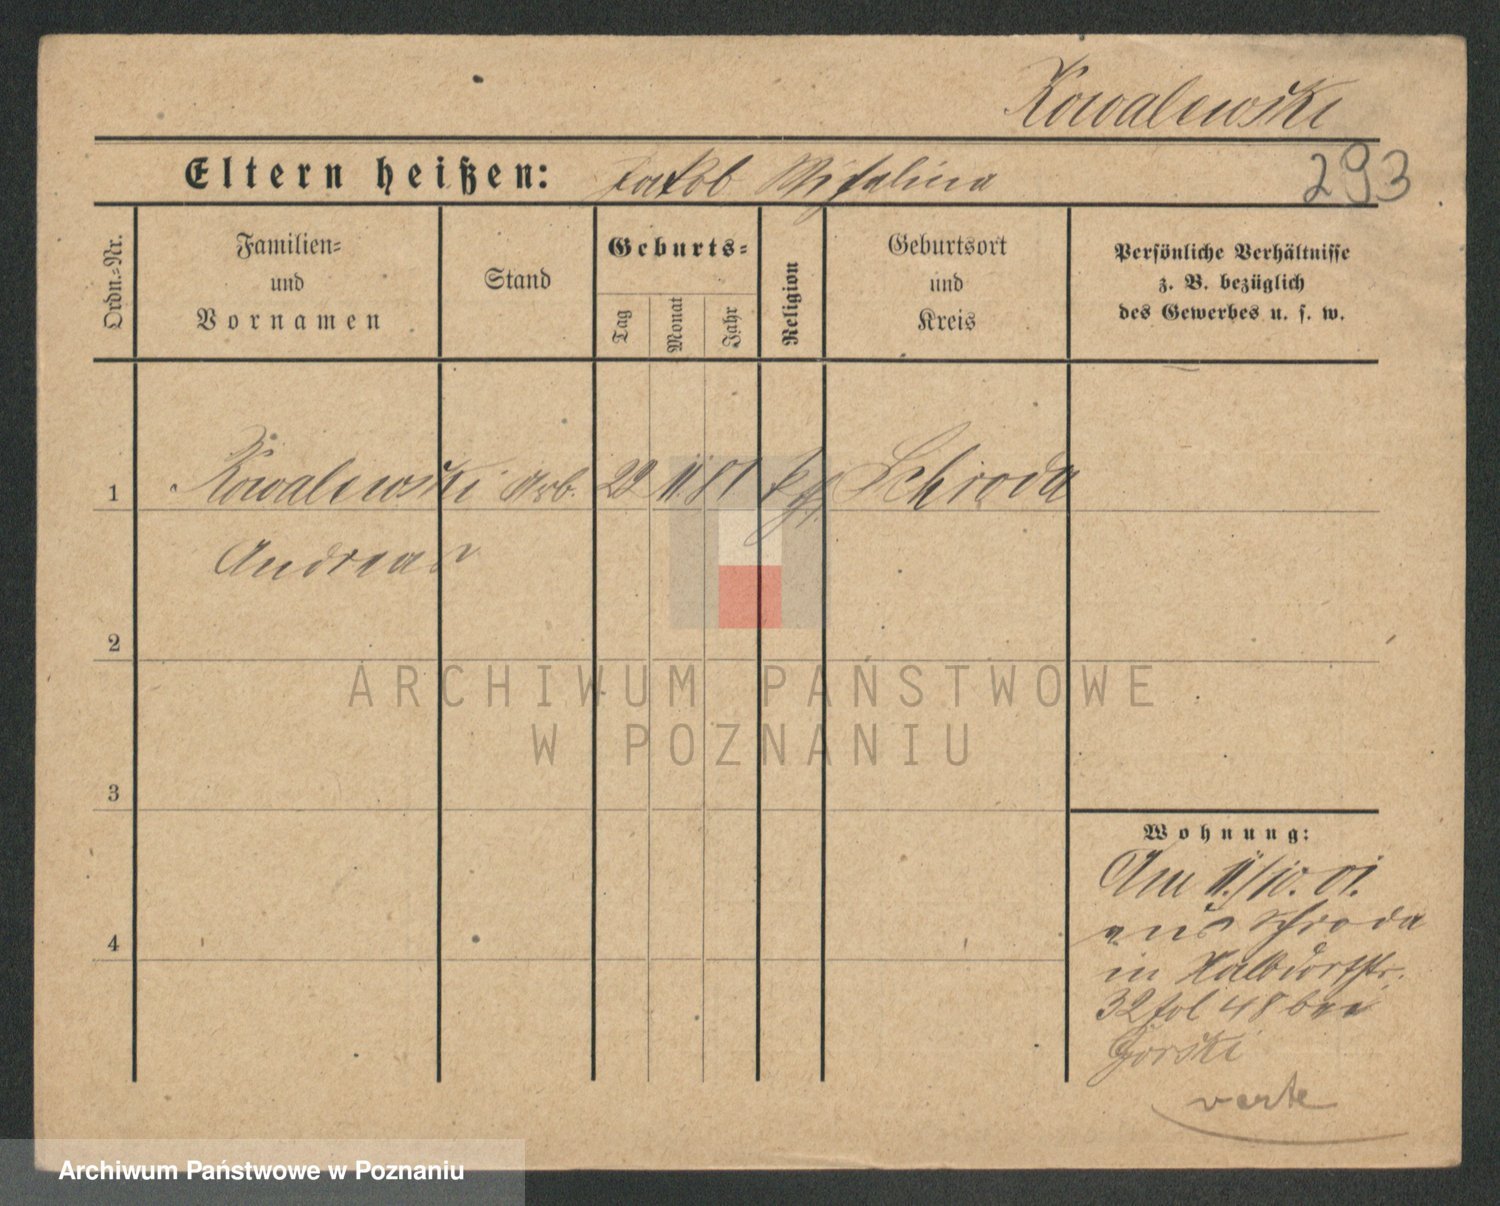 Kowalewski
Eltern heißen: Jakob
293
Ordn.=Nr.
Familien=
und
Vornamen
Stand
Geburts=
Tag
Monat
Jahr
Religion
Geburtsort
und
Kreis
Persönliche Verhältnisse
z. B. bezüglich
des Gewerbes u. s. w.
1 Kowalewski Arb. 29 11. 81 Schroda
Andreas
2
ARCHIWUM PAŃSTWOWE
W POZNANIU
3
Wohnung:
Am 11./10. 01.
aus Schroda
in Halbdorfstr.
32 fol 48 bei
Gorski
verte
4
Archiwum Państwowe w Poznaniu